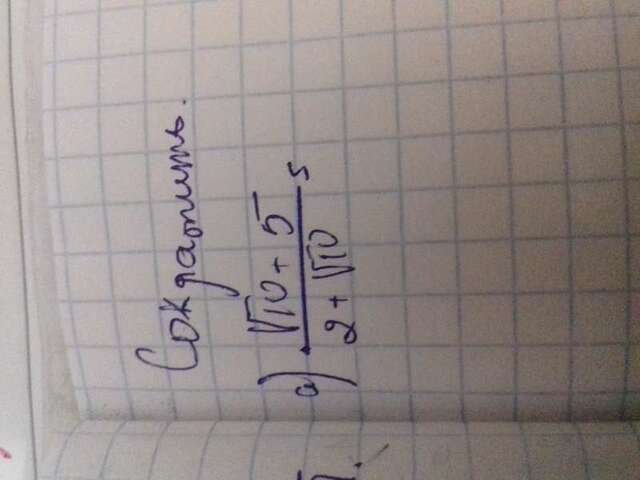 Сократить.
а) √10 + 5
2 + √10
;